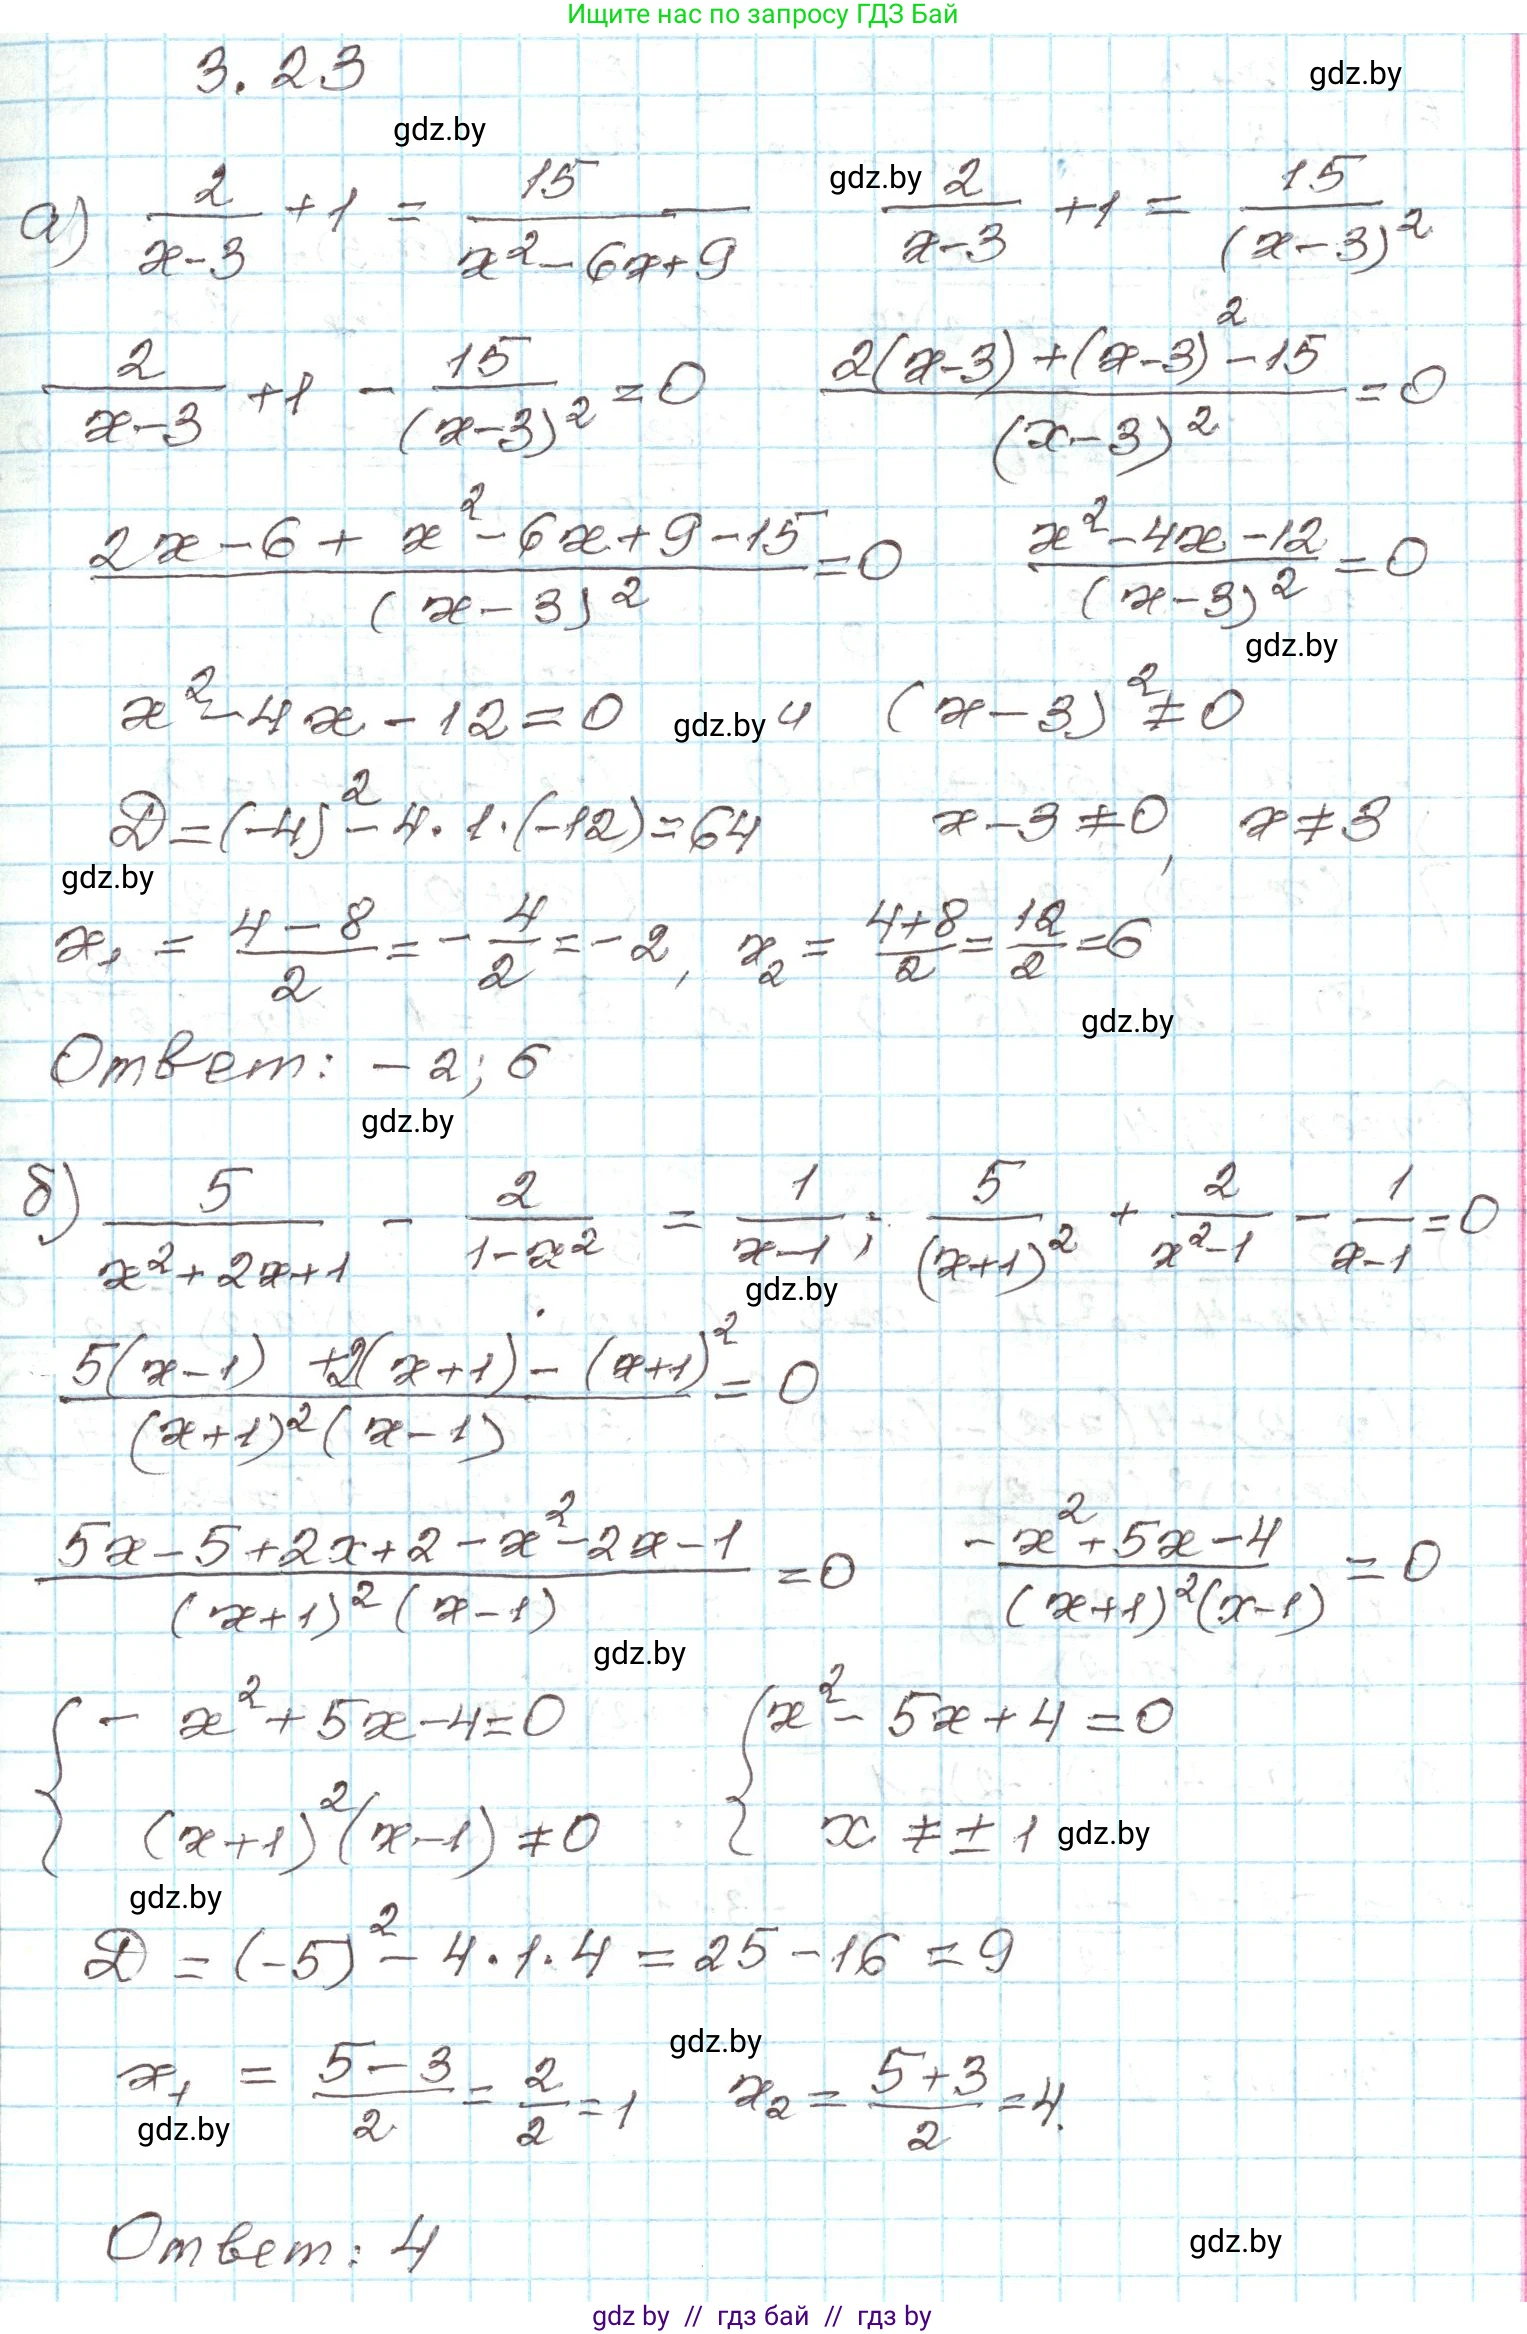 Ищите нас по запросу ГДЗ Бай
3.23
gdz.by
gdz.by
а) 2/(x-3) + 1 = 15/(x² - 6x + 9) gdz.by 2/(x-3) + 1 = 15/(x-3)²
2/(x-3) + 1 - 15/(x-3)² = 0 (2(x-3) + (x-3)² - 15)/(x-3)² = 0
(2x - 6 + x² - 6x + 9 - 15)/(x-3)² = 0 (x² - 4x - 12)/(x-3)² = 0
gdz.by
x² - 4x - 12 = 0 gdz.by и (x-3)² ≠ 0
D = (-4)² - 4·1·(-12) = 64 x - 3 ≠ 0, x ≠ 3
gdz.by
x₁ = (4-8)/2 = -4/2 = -2, x₂ = (4+8)/2 = 12/2 = 6
gdz.by
Ответ: -2; 6
gdz.by
б) 5/(x² + 2x + 1) - 2/(1-x²) = 1/(x-1); 5/(x+1)² + 2/(x²-1) - 1/(x-1) = 0
gdz.by
(5(x-1) + 2(x+1) - (x+1)²)/((x+1)²(x-1)) = 0
(5x - 5 + 2x + 2 - x² - 2x - 1)/((x+1)²(x-1)) = 0 (-x² + 5x - 4)/((x+1)²(x-1)) = 0
gdz.by
{ - x² + 5x - 4 = 0 { x² - 5x + 4 = 0
(x+1)²(x-1) ≠ 0 x ≠ ± 1 gdz.by
gdz.by
D = (-5)² - 4·1·4 = 25 - 16 = 9
gdz.by
x₁ = (5-3)/2 = 2/2 = 1 x₂ = (5+3)/2 = 4.
gdz.by
Ответ: 4
gdz.by
gdz by // гдз бай // гдз by